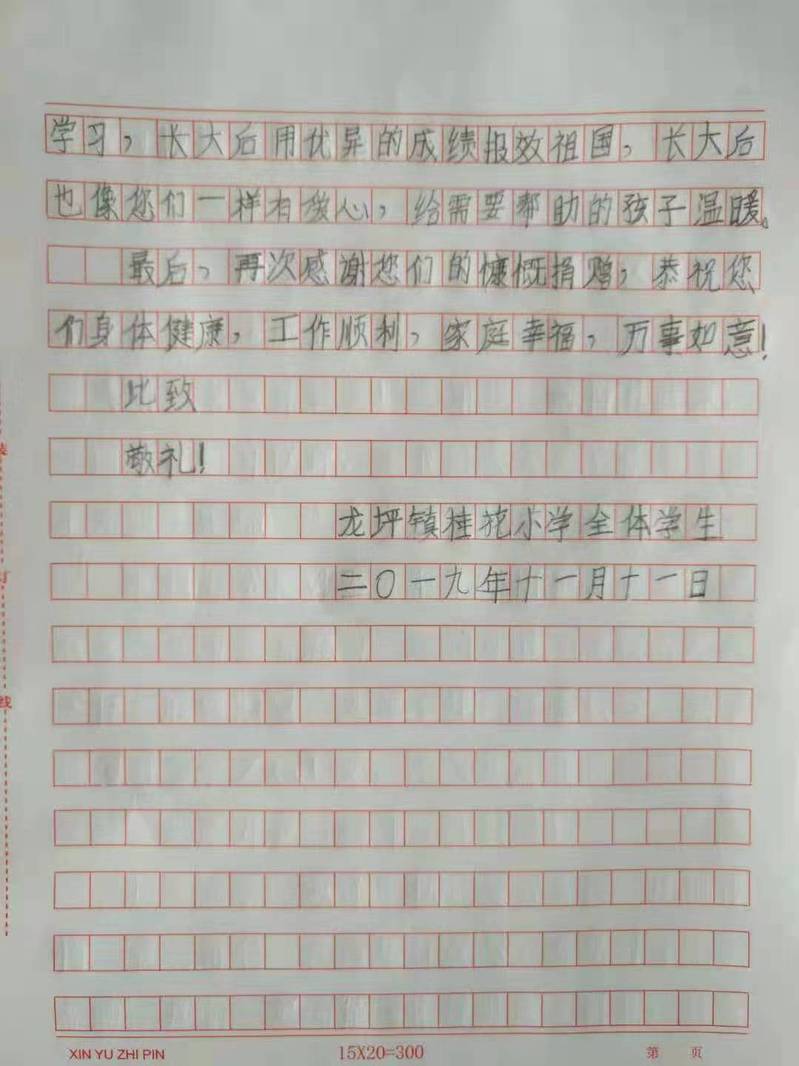 学习，长大后用优异的成绩报效祖国，长大后
也像您们一样有爱心，给需要帮助的孩子温暖。
最后，再次感谢您们的慷慨捐赠，恭祝您
们身体健康，工作顺利，家庭幸福，万事如意！
比致
敬礼！
龙坪镇桂花小学全体学生
二〇一九年十一月十一日
装
订
线
XIN YU ZHI PIN 15X20=300 第 页